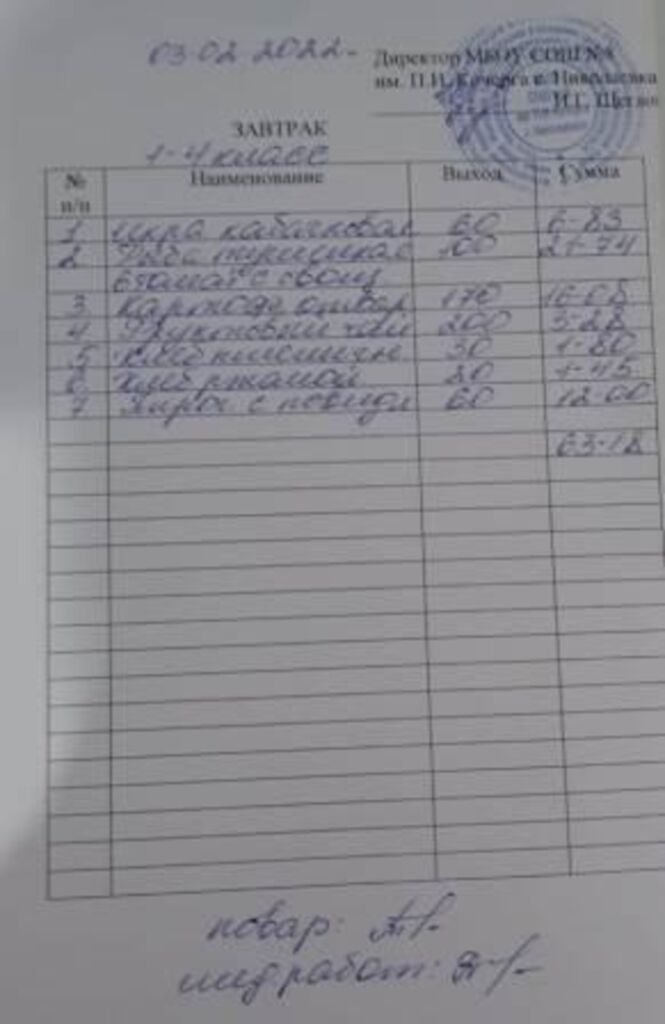 03.02.2022-
Директор МБОУ СОШ №
им. П.И.
И.Г.
ЗАВТРАК
1-4 класс
№ п/п Наименование Выход Сумма
1 Икра кабачковая 60 6-83
2 Рыба 100 21-74
в томате с овощ
3 Картофель отвар 170 16-08
4 чай 200 3-28
5 хлеб пшеничн 30 1-80
6 хлеб ржаной 20 1-45
7 Пирог с повидл 60 12-00
63-18
повар:
мед работ: